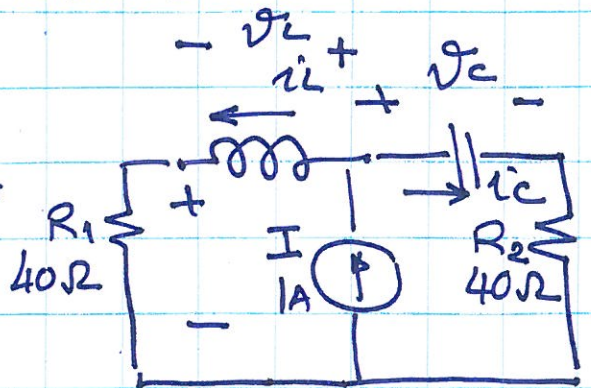 − vL +
iL
+ vC −
iC
+
R1
40Ω
−
I
1A
R2
40Ω